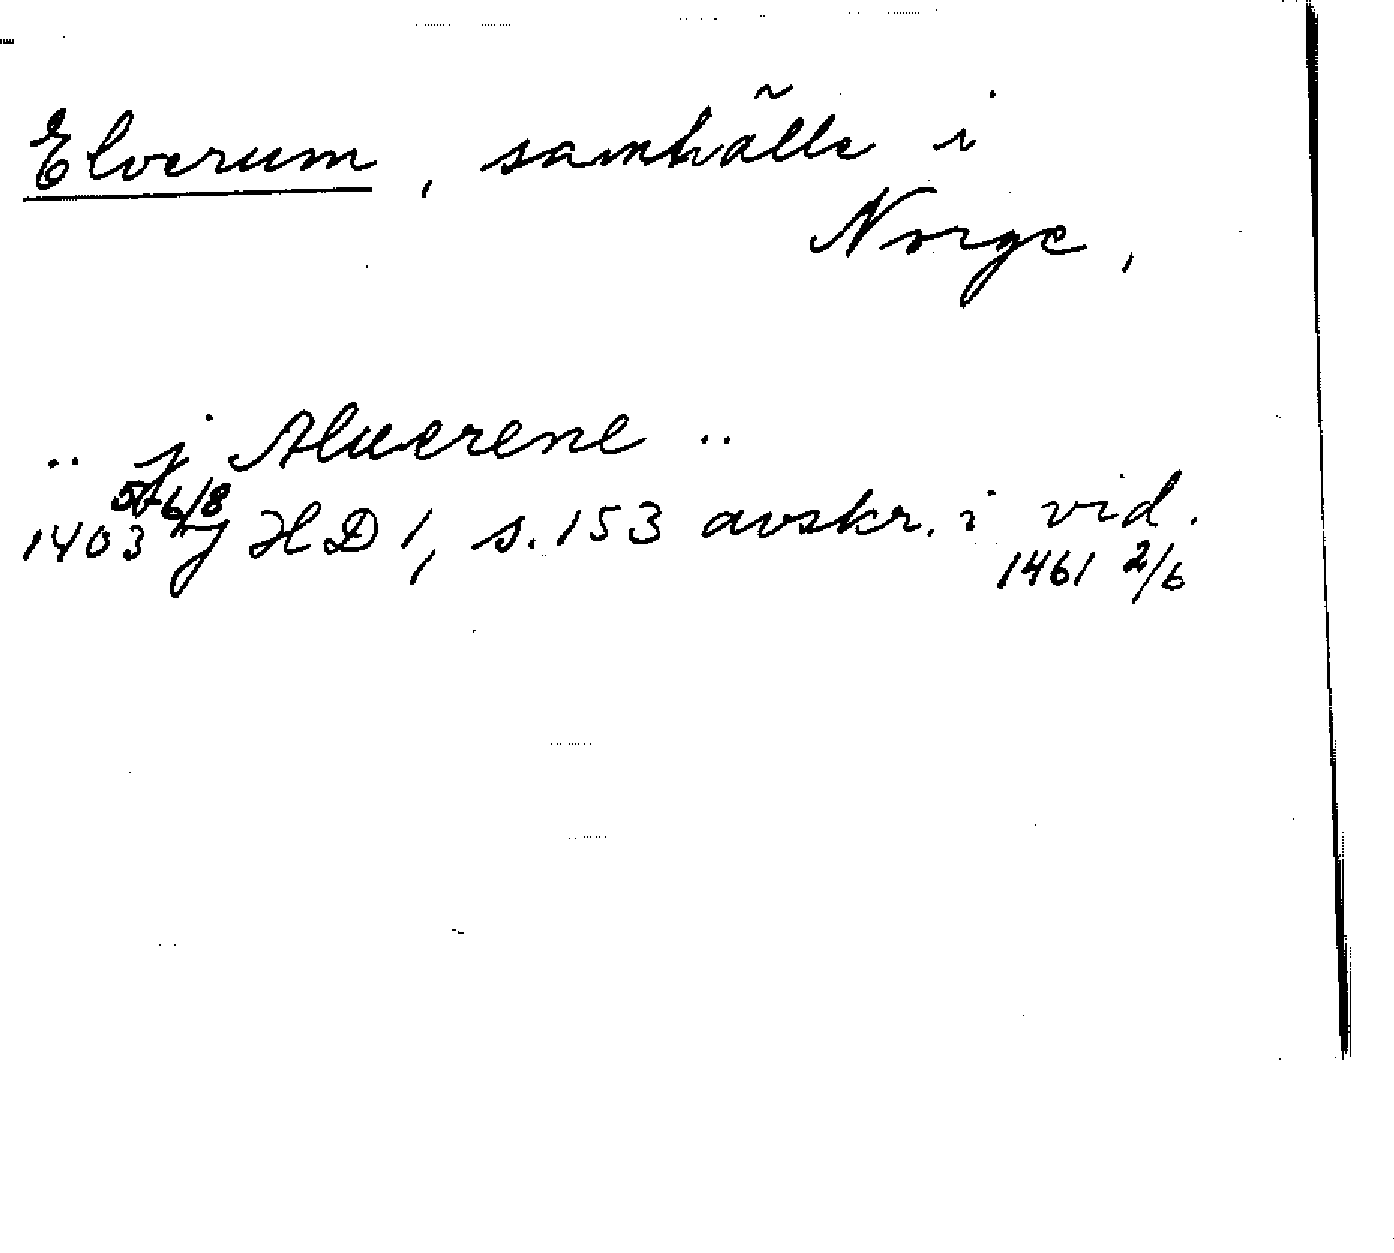 Elverum, samhälle i
Norge,
.. j Alwerene ..
1403 6/8 HD 1, s. 153 avskr. i vid.
1461 2/6